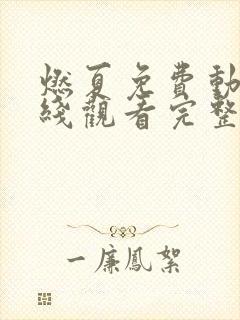 燃夏免費動
綫觀看完整
一廉鳳絮